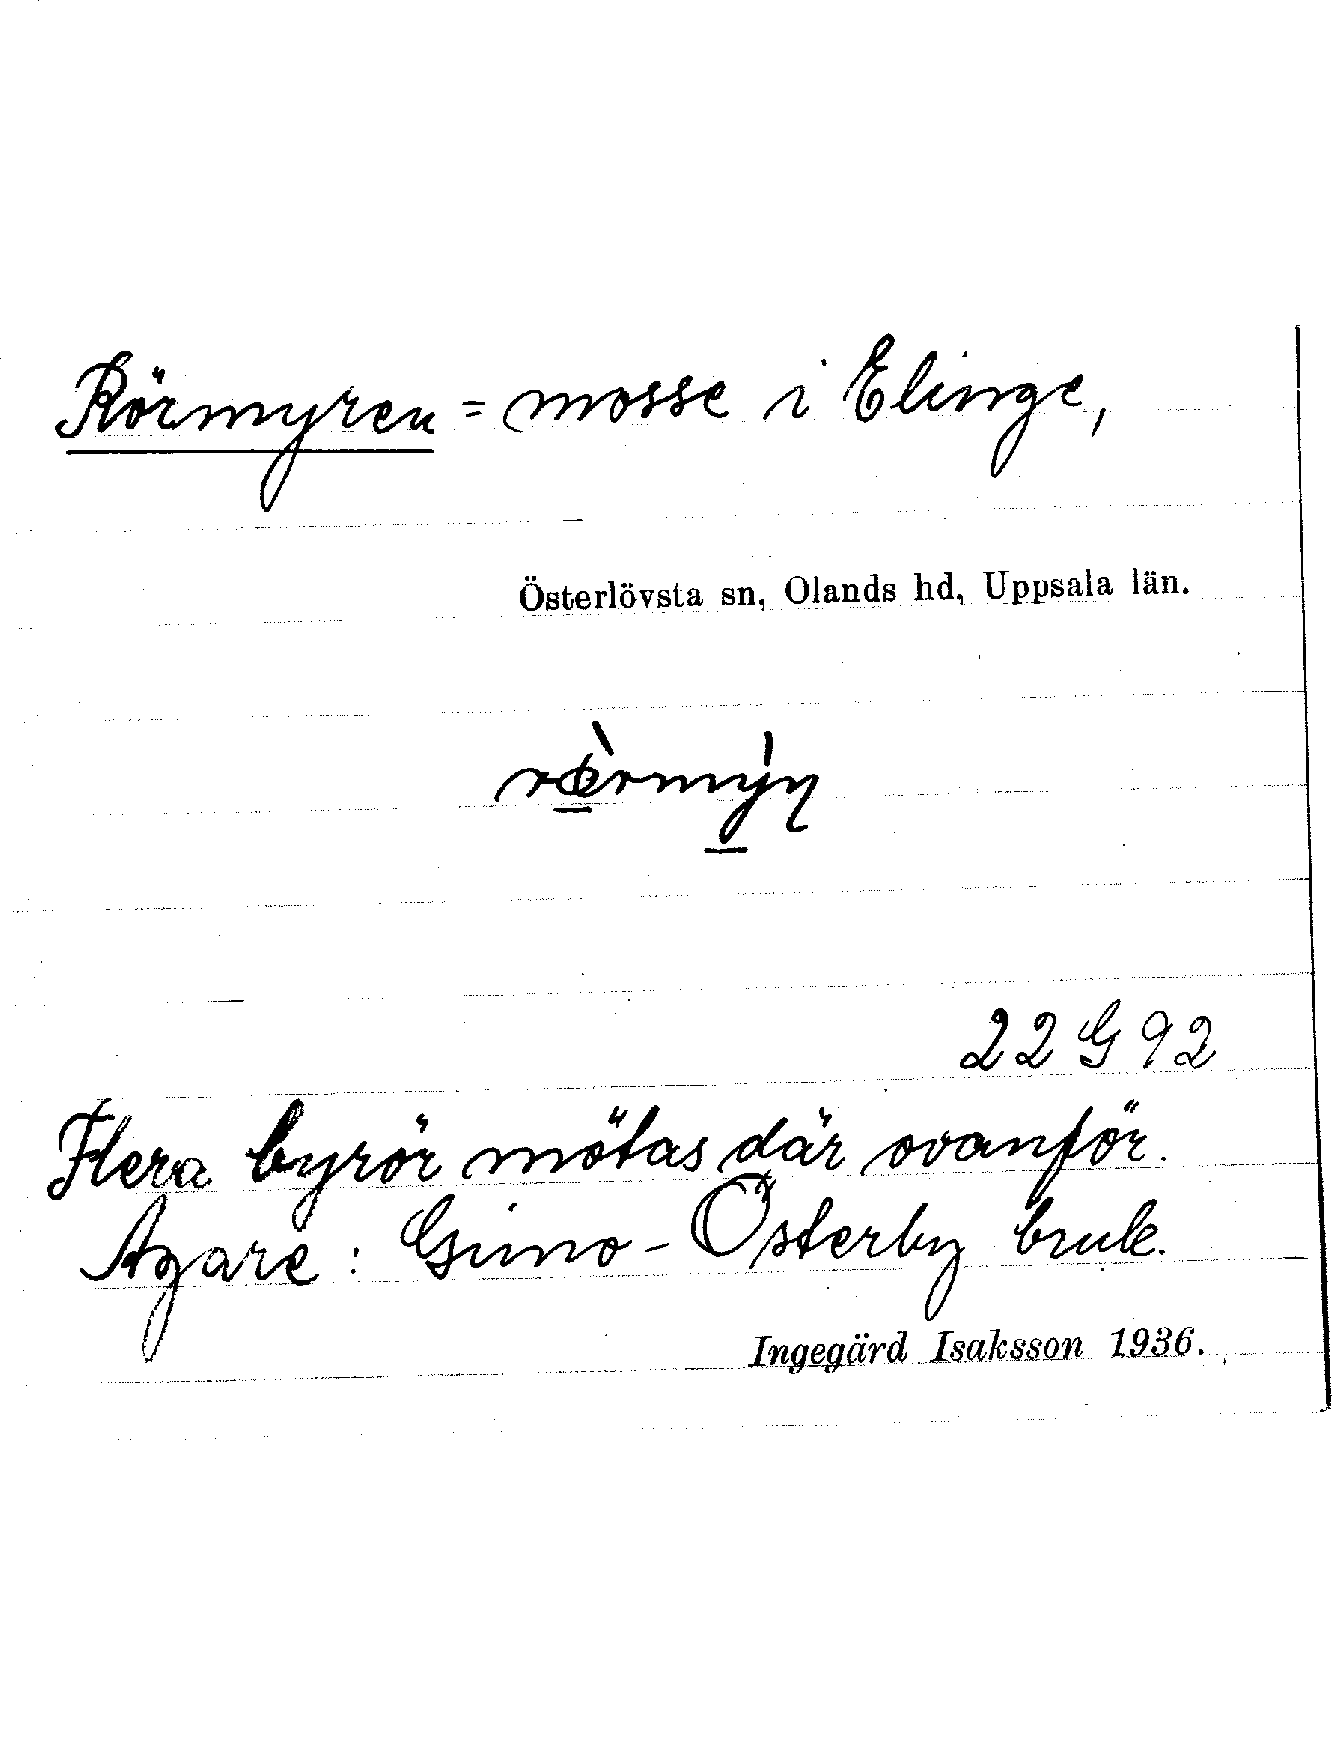 Rörmyren = mosse i Elinge,
Österlövsta sn, Olands hd, Uppsala län.
22 G 92
Flera byrör mötas där ovanför.
Ägare: Gimo-Österby bruk.
Ingegärd Isaksson 1936.